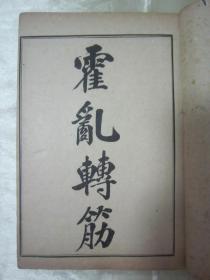 霍亂轉筋